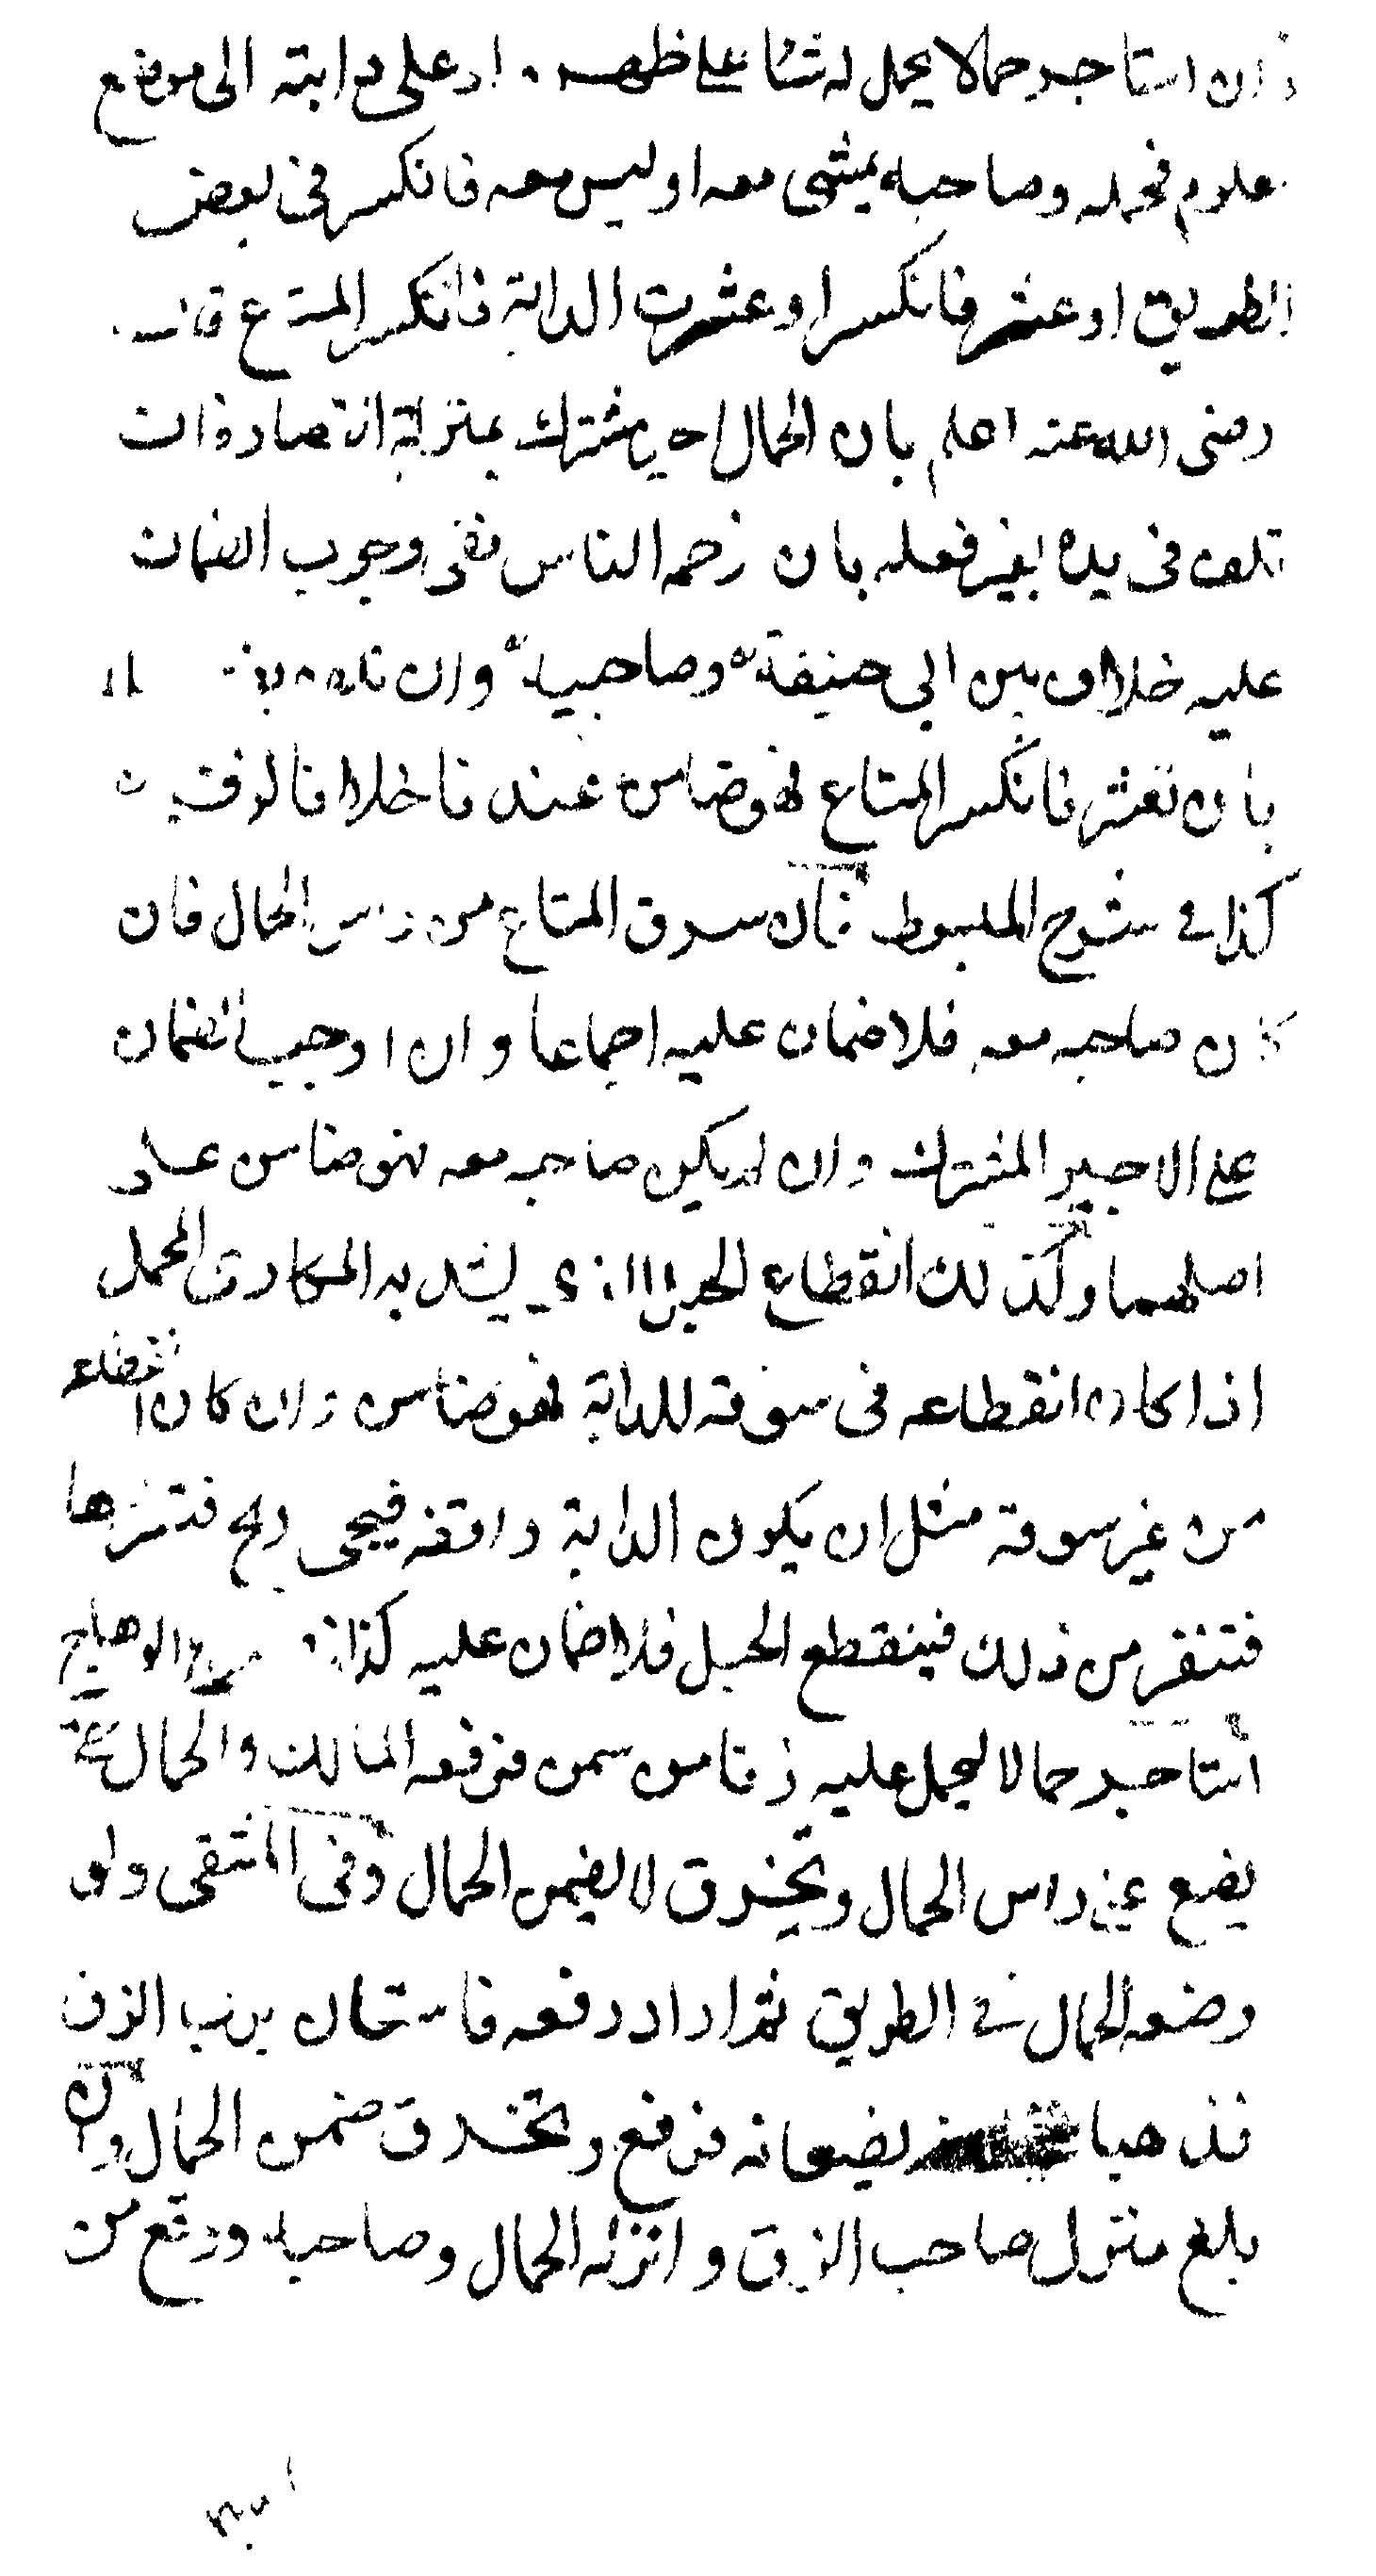 وان استاجر حمالا يحمل له شئا على ظهره او على دابته الى موضع
معلوم فحمله وصاحبه يمشى معه او ليس معه فانكسر فى بعض
الطريق او عثر فانكسر او عثرت الدابة فانكسر المتاع قال
رضى الله عنه اعلم بان الحمال اجير مشترك بمنزلة القصار فان
تلف فى يده بغير فعله بان زحمه الناس ففى وجوب الضمان
عليه خلاف بين ابى حنيفة وصاحبيه وان تلف
بان تعثر فانكسر المتاع فهو ضامن عندنا خلافا لزفر
كذا فى شرح المبسوط فان سرق المتاع من راس الحمال فان
كان صاحبه معه فلا ضمان عليه اجماعا وان اوجبنا الضمان
على الاجير المشترك وان لم يكن صاحبه معه فهو ضامن على
اصلهما وكذلك انقطاع الحبل الذى يشد به المكارى المحمل
اذا كان انقطاعه فى سوقه للدابة فهو ضامن وان كان انقطاعه
من غير سوقه مثل ان يكون الدابة واقفه فيجى ريح
فتنفر من ذلك فينقطع الحبل فلا ضمان عليه كذا
استاجر حمالا ليحمل عليه زقا من سمن فرفعه المالك والحمال
يضع على راس الحمال وتخرق لا يضمن الحمال وفى المنتقى ولو
وضعه الحمال فى الطريق ثم اراد رفعه فاستعان برب الزق
فذهبا يضعانه فرفع وتخرق ضمن الحمال وان
بلغ منزل صاحب الزق وانزله الحمال وصاحبه ووقع من